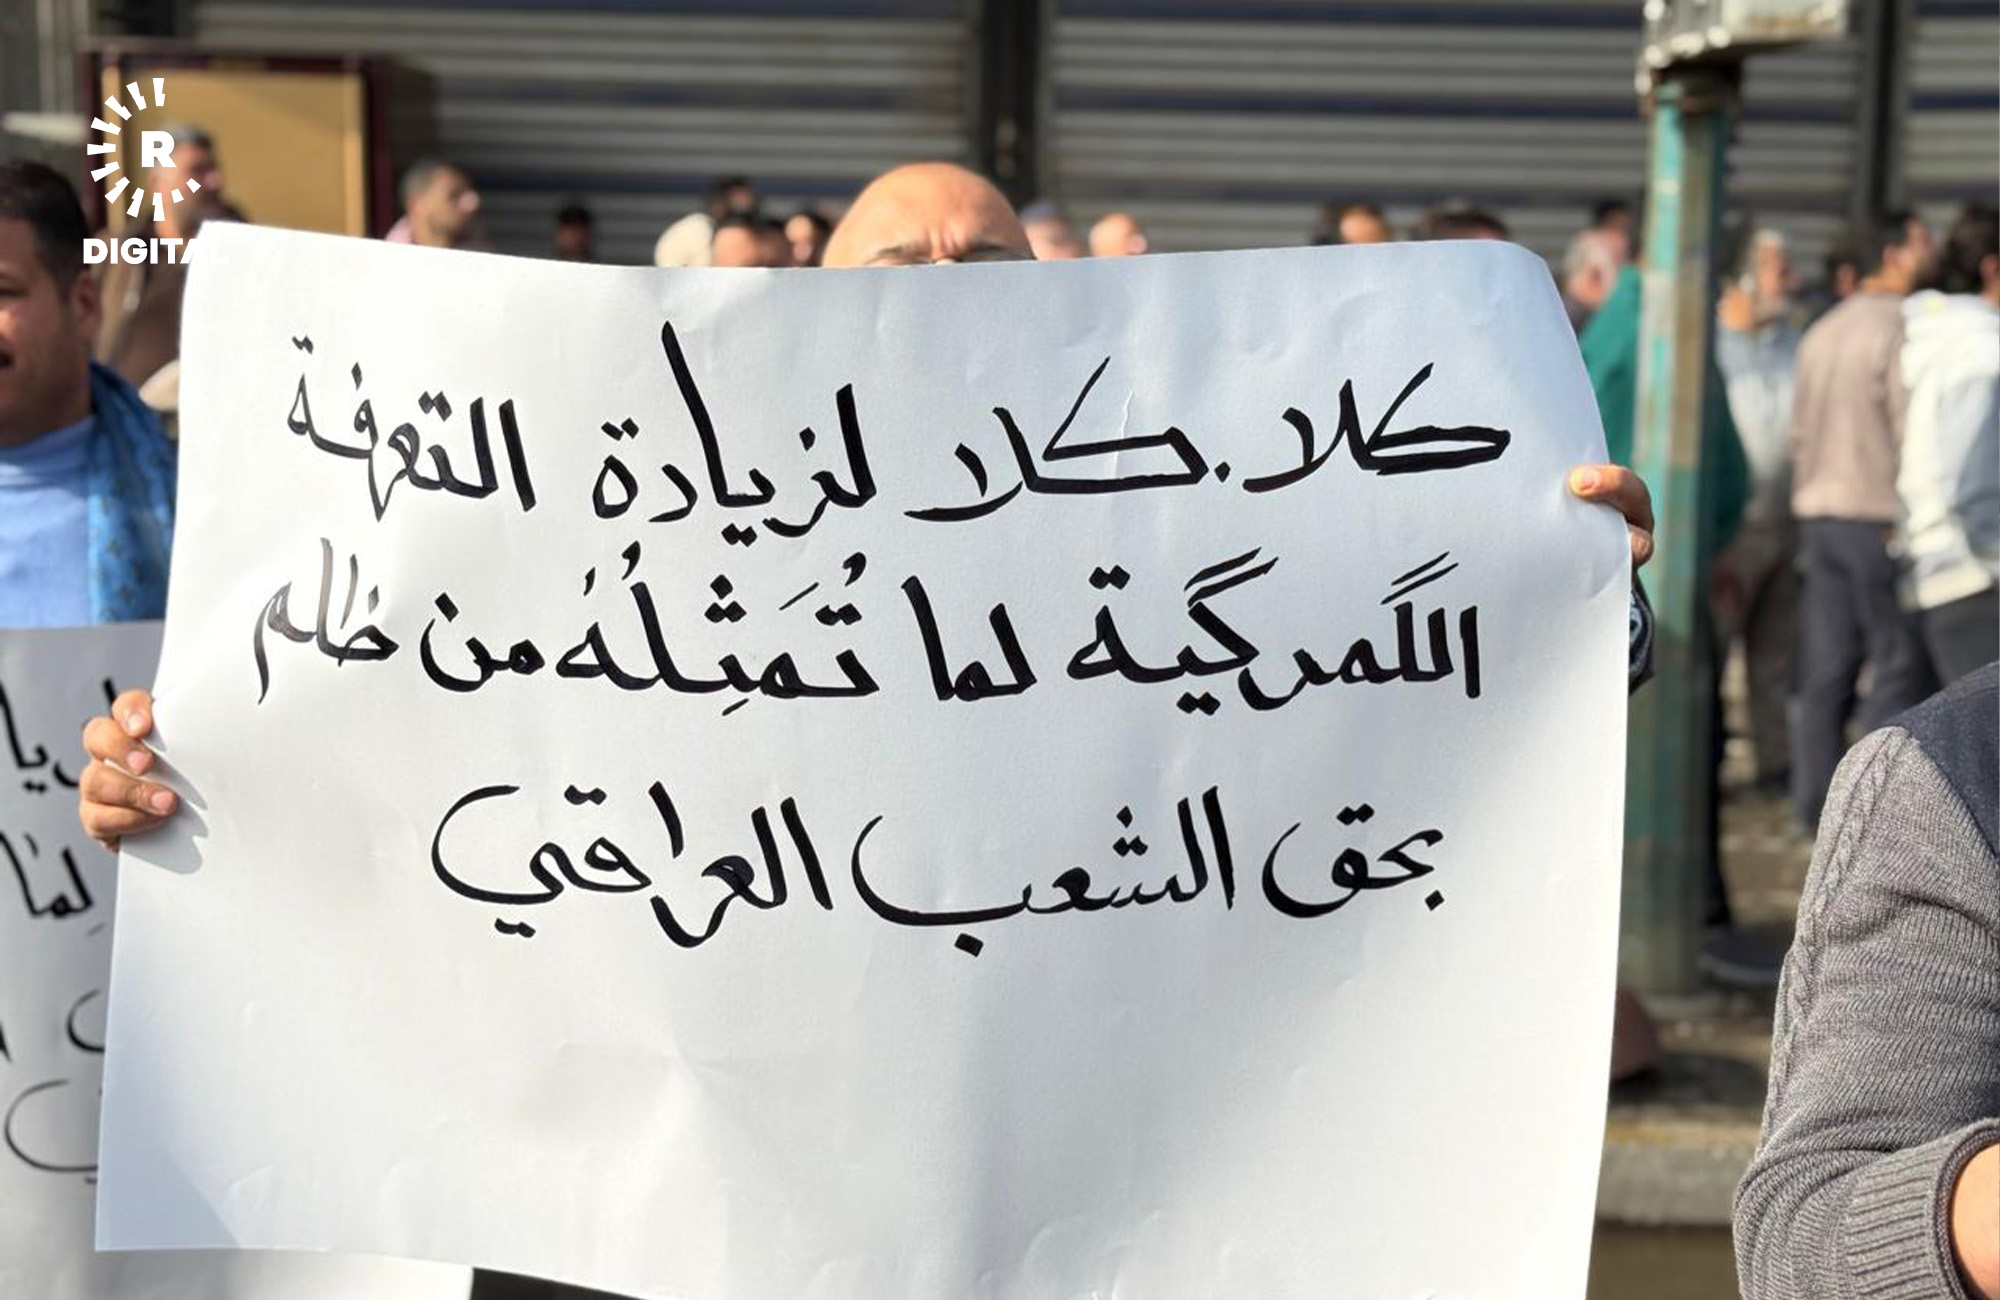 R
DIGITAL
كلا.كلا لزيادة التعرفة
الگمرگية لما تُمَثِلُهُ من ظلم
بحق الشعب العراقي
لما